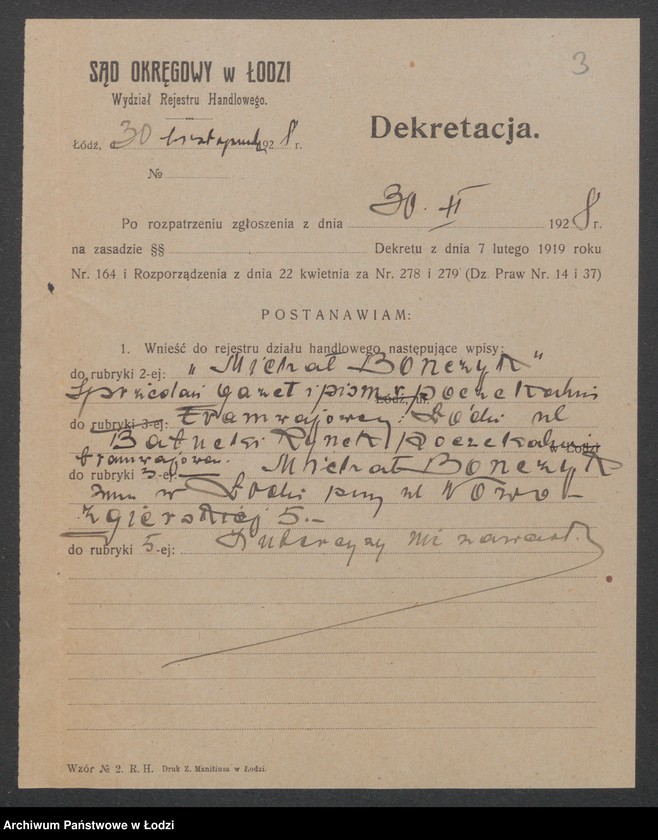 3
SĄD OKRĘGOWY w ŁODZI
Wydział Rejestru Handlowego.
Łódź, d. 30 listopada 1928 r.
№
Dekretacja.
Po rozpatrzeniu zgłoszenia z dnia 30. II 1928 r.
na zasadzie §§ Dekretu z dnia 7 lutego 1919 roku
Nr. 164 i Rozporządzenia z dnia 22 kwietnia za Nr. 278 i 279 (Dz. Praw Nr. 14 i 37)
POSTANAWIAM:
1. Wnieść do rejestru działu handlowego następujące wpisy:
do rubryki 2-ej: „Michał Bończyk"
Sprzedaż gazet i pism w poczekalni
Łódź, ul.
do rubryki 3-ej: tramwajowej. Łódź ul
Bałucki Rynek poczekalnia
w Łodzi
tramwajowa.
do rubryki 3-ej: Michał Bończyk
zam w Łodzi przy ul Nowo-
Zgierskiej 5.-
do rubryki 5-ej: Intercyzy nie zawarł.
Wzór № 2. R. H. Druk Z. Manitiusa w Łodzi.
Archiwum Państwowe w Łodzi